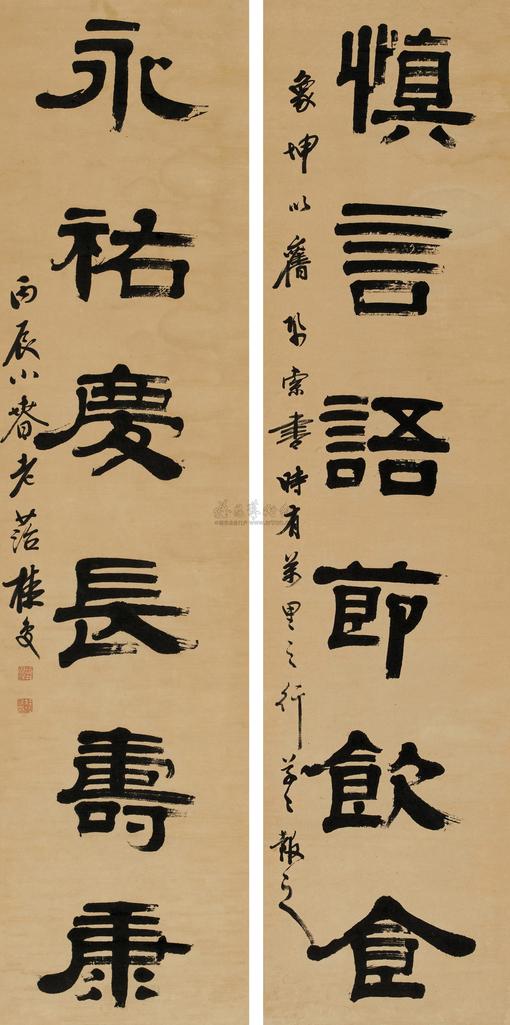 慎言語節飲食
象坤以舊紙索書時有萬里之行草〻報之
永祐慶長壽康
丙辰小春老菭桂复